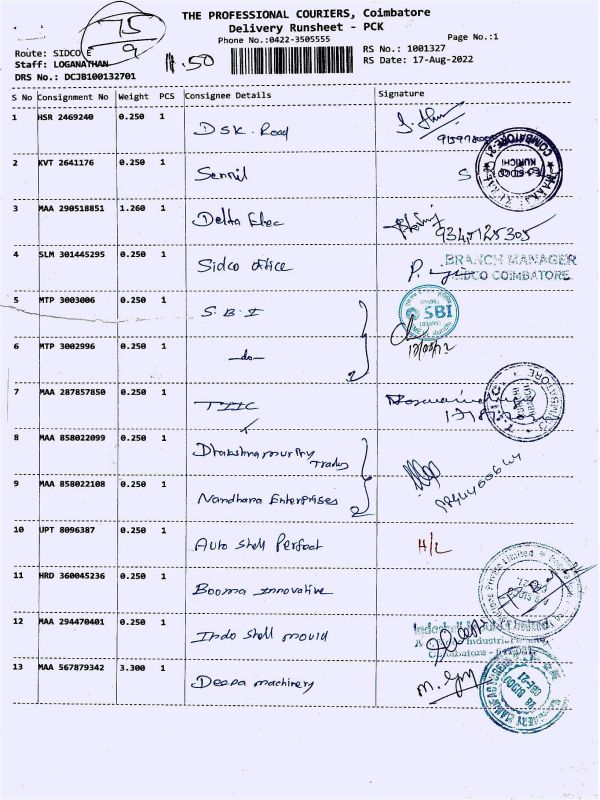 75
9
THE PROFESSIONAL COURIERS, Coimbatore
Delivery Runsheet - PCK
Phone No.:0422-3505555
Page No.:1
Route: SIDCO E
Staff: LOGANATHAN
DRS No.: DCJB100132701
11.50
RS No.: 1001327
RS Date: 17-Aug-2022
S No Consignment No Weight PCS Consignee Details Signature
1 HSR 2469240 0.250 1 DSK Road
2 KVT 2641176 0.250 1 Sennil S
3 MAA 290518851 1.260 1 Delta Elec 9345125305
4 SLM 301445295 0.250 1 Sidco office
BRANCH MANAGER
SIDCO COIMBATORE
5 MTP 3003006 0.250 1 S.B.I
SBI
6 MTP 3002996 0.250 1 -do-
7 MAA 287857850 0.250 1 TIIC
8 MAA 858022099 0.250 1 Dhakshnamurthy Trades
9 MAA 858022108 0.250 1 Nandhana Enterprises
10 UPT 8096387 0.250 1 Auto Shell Perfect H/L
11 HRD 360045236 0.250 1 Booma innovative
12 MAA 294470401 0.250 1 Indo Shell mould
13 MAA 567879342 3.300 1 Deepa machinery